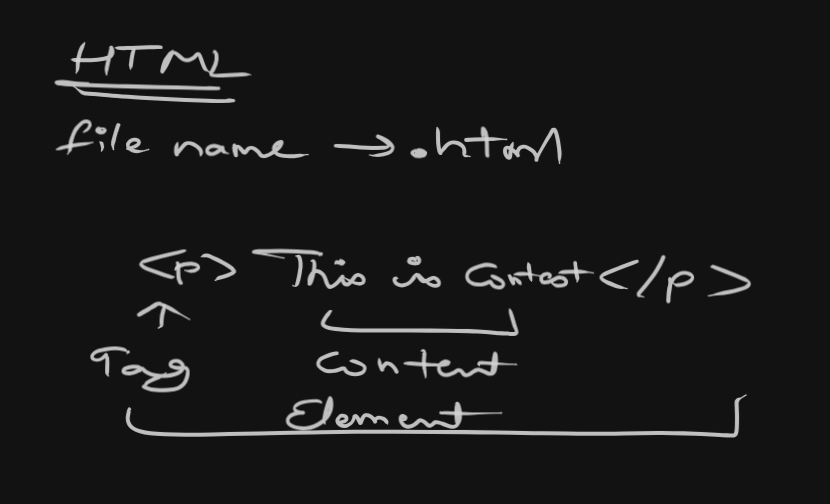 HTML
file name → .html
<p> This is Contest </p>
Tag
Content
Element